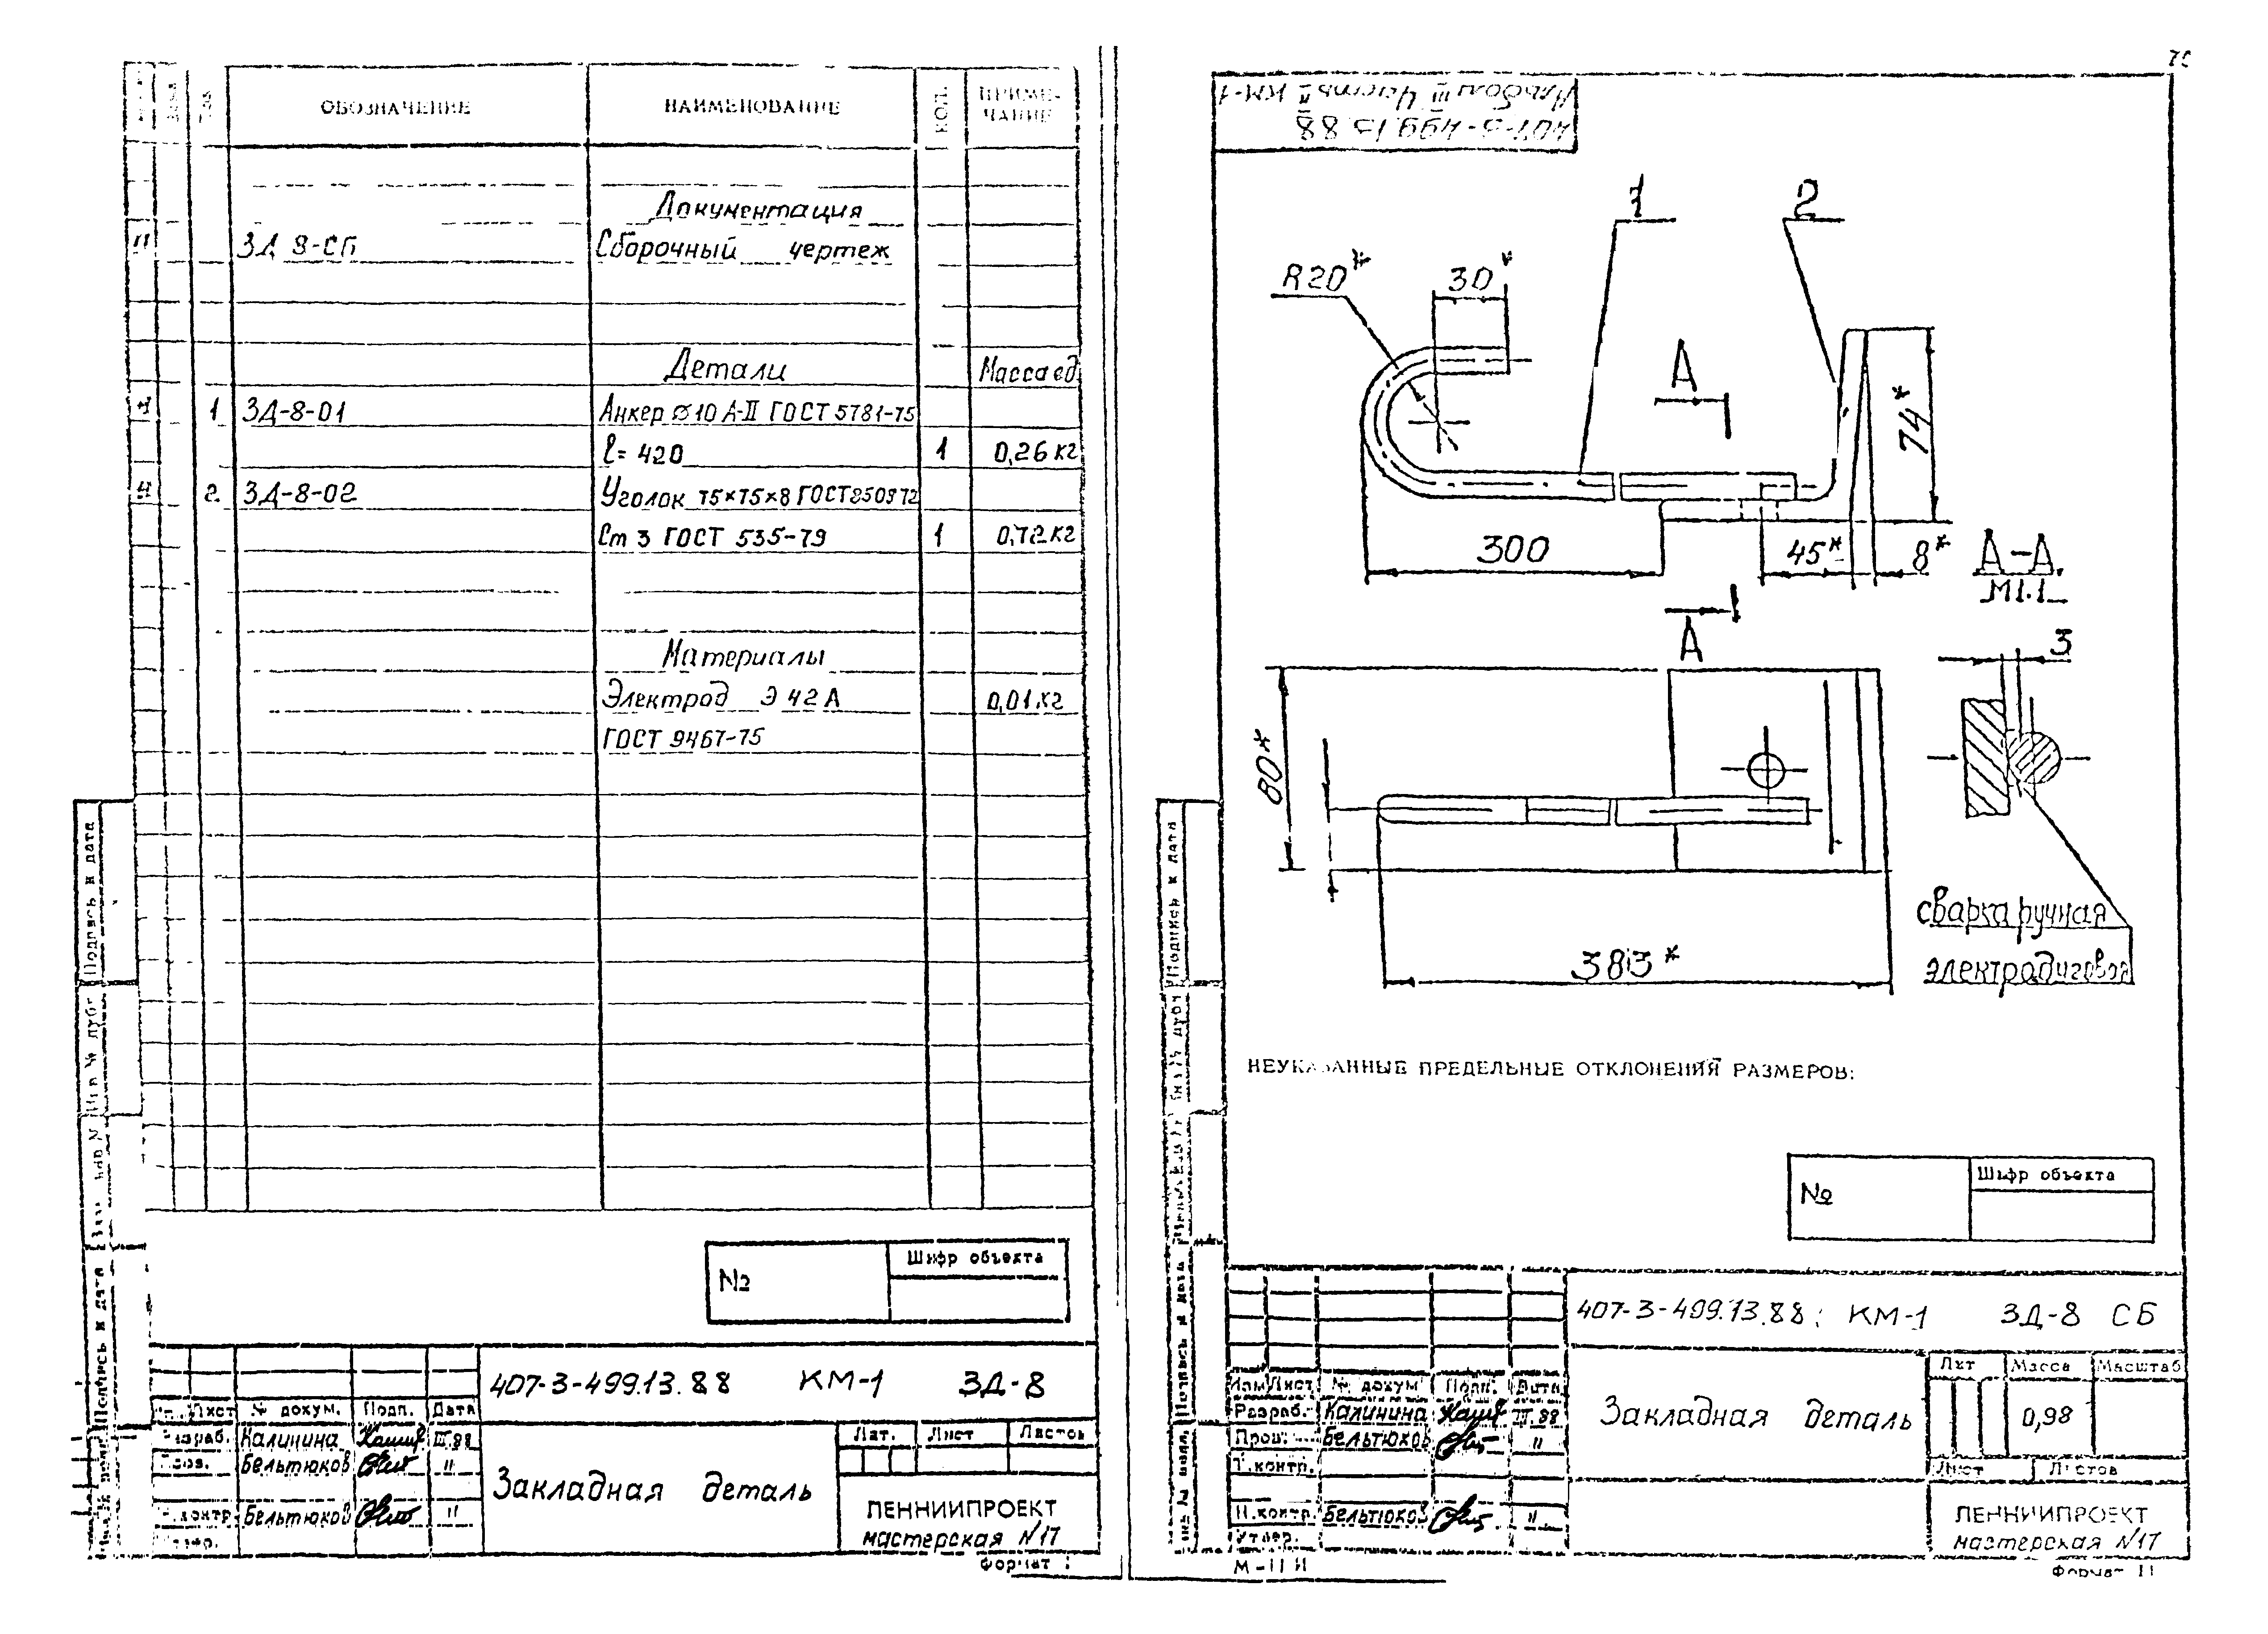 ОБОЗНАЧЕНИЕ НАИМЕНОВАНИЕ КОЛ. ПРИМЕ-
ЧАНИЕ
Документация
ЗД 8-СБ Сборочный чертеж
Детали Масса ед
1 ЗД-8-01 Анкер ⌀10 А-II ГОСТ 5781-75
ℓ= 420 1 0,26 кг
2. ЗД-8-02 Уголок 75×75×8 ГОСТ 8509 72
Ст 3 ГОСТ 535-79 1 0,72 кг
Материалы
Электрод Э 42 А 0,01 кг
ГОСТ 9467-75
Подпись и дата
Подпись и дата
№ Шифр объекта
407-3-499.13.88 КМ-1 ЗД-8
Лист № докум. Подп. Дата
Разраб. Калинина III.88
Пров. Бельтюков "
Н.контр Бельтюков "
Закладная деталь
Лит. Лист Листов
ЛЕННИИПРОЕКТ
мастерская №17
Формат
407-3-499.13.88
Альбом III Часть II КМ-1
1
2
R20*
30*
А
74*
300
45*
8*
А-А
М1:1
А
3
80*
383*
сварка ручная
электродуговая
НЕУКАЗАННЫЕ ПРЕДЕЛЬНЫЕ ОТКЛОНЕНИЯ РАЗМЕРОВ:
Подпись и дата
№ Шифр объекта
407-3-499.13.88; КМ-1 ЗД-8 СБ
Изм Лист № докум Подп. Дата
Разраб. Калинина III.88
Пров. Бельтюков "
Т.контр.
Н.контр. Бельтюков "
Утвер.
Закладная деталь
Лит Масса Масштаб
0,98
Лист Листов
ЛЕННИИПРОЕКТ
мастерская №17
Формат 11